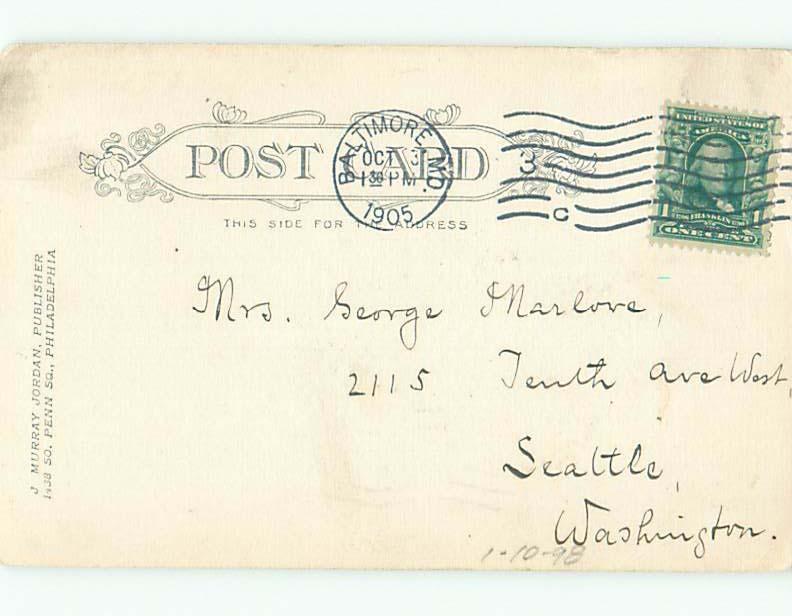 POST CARD
BALTIMORE, MD.
OCT 3
1 30 PM
1905
3
C
UNITED STATES OF
AMERICA
FRANKLIN
ONE CENT
THIS SIDE FOR THE ADDRESS
Mrs. George Marlove,
2115 Tenth Ave West,
Seattle,
Washington.
1-10-98
J MURRAY JORDAN, PUBLISHER
1438 SO. PENN SQ., PHILADELPHIA